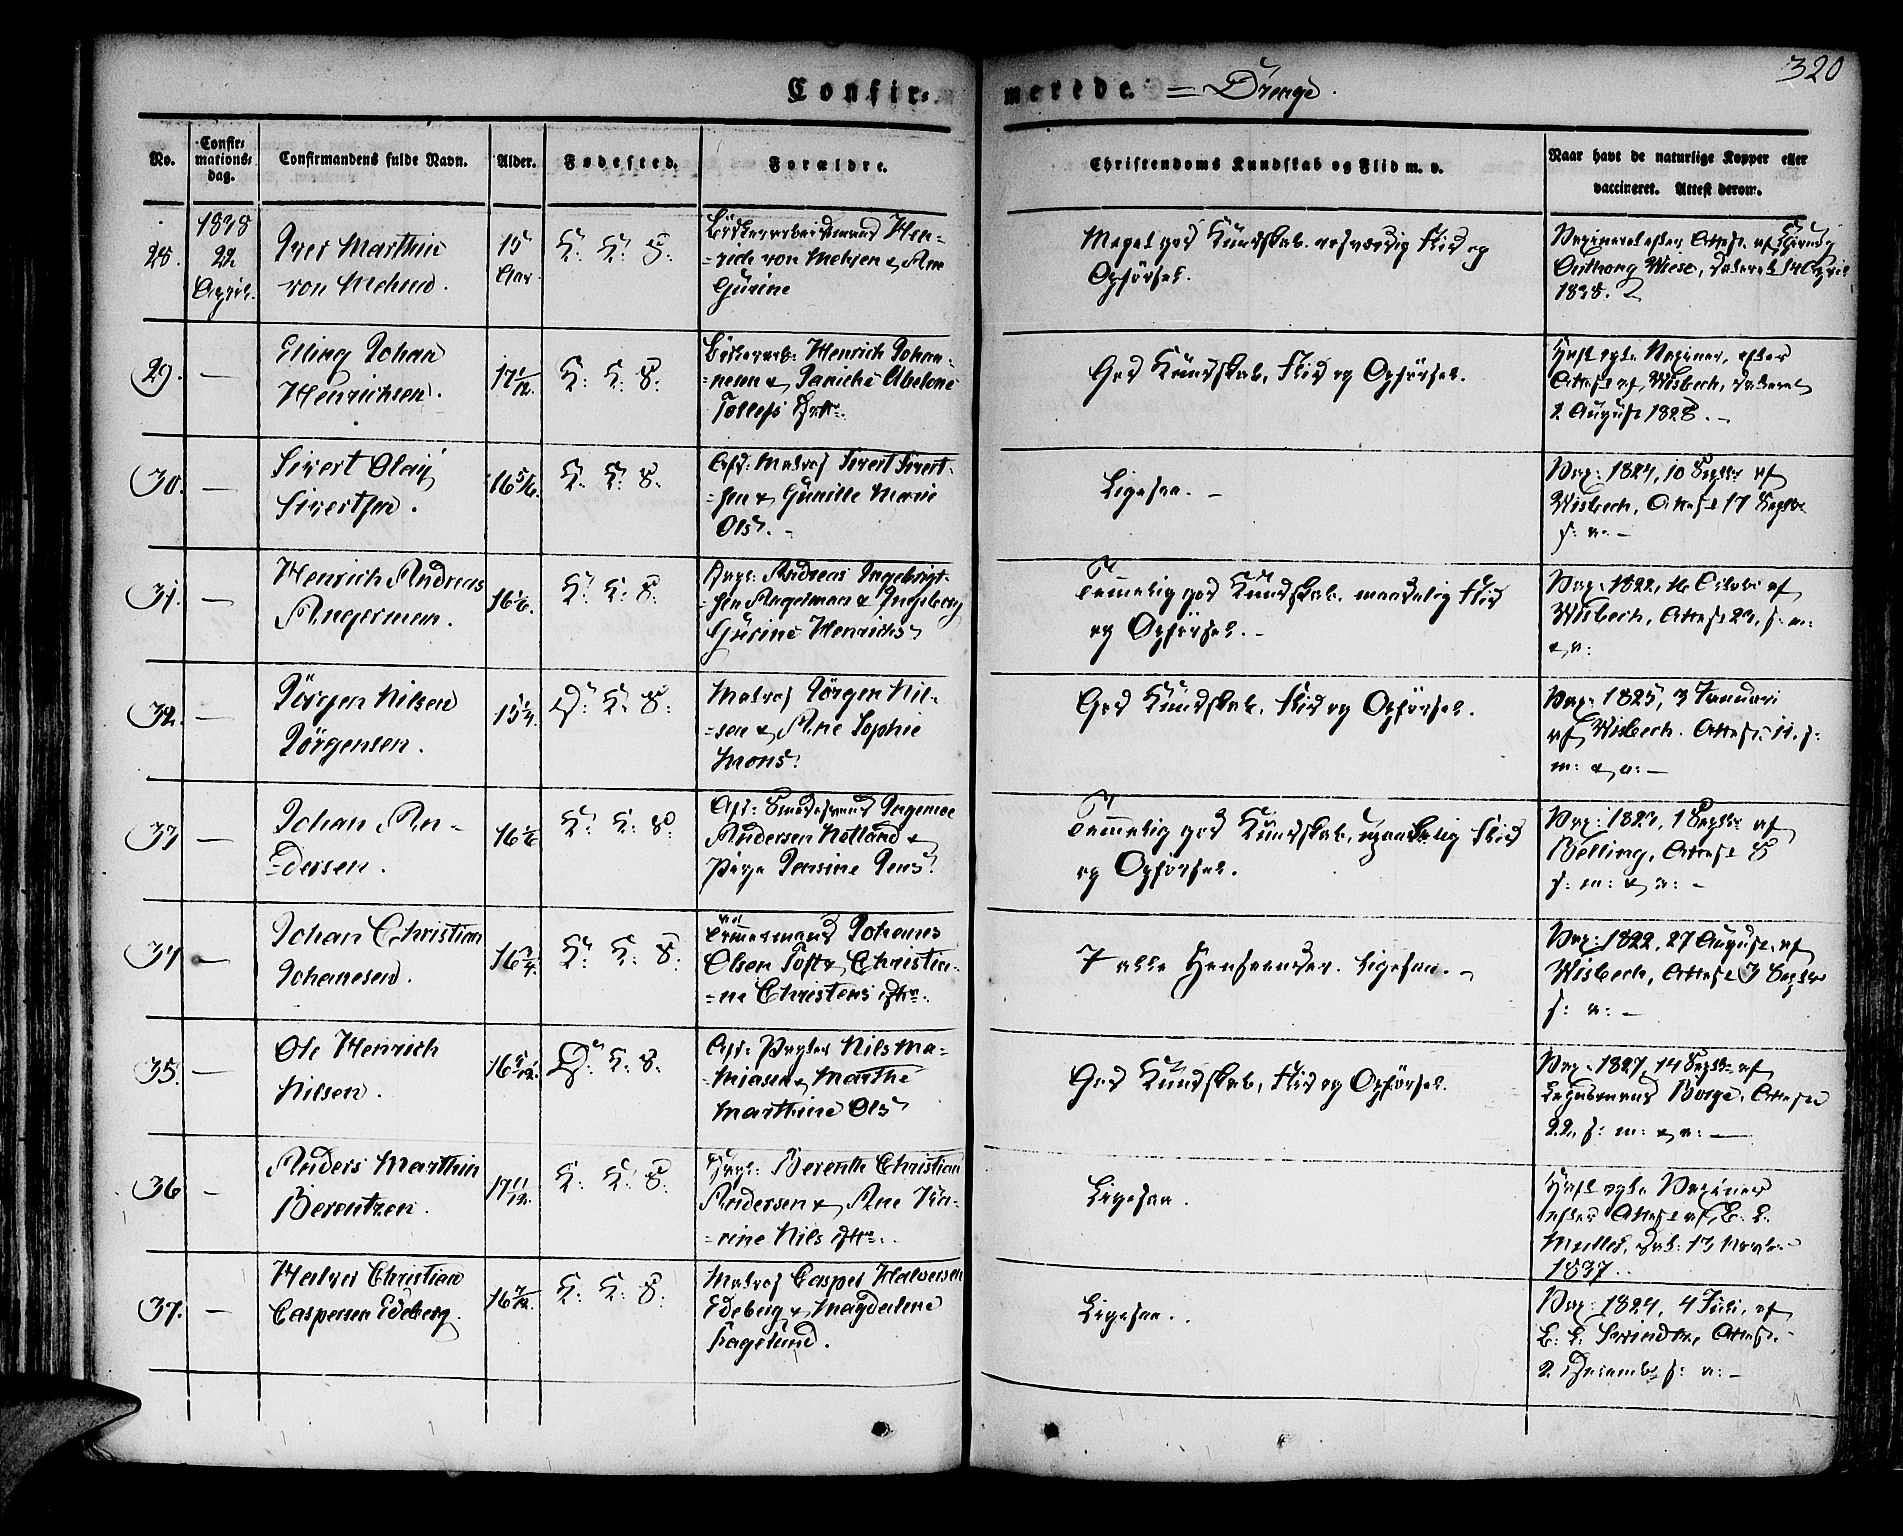 320
Confir=merede = Drenge.
No.
Confir=
mations=
dag.
Confirmandens fulde Navn.
Alder.
Fødested.
Forældre.
Christendoms Kundskab og Flid m. v.
Naar havt de naturlige Kopper eller
vaccineret. Attest derom.
28.
1838
22
April.
Iver Marthin
von Mehren.
15
Aar.
K. K. S.
Hen=
=rich von Mehren & Ane
Gurine
Meget god Kundskab. roesværdig Flid og
Opförsel.
Vaxineret efter Attest af
Anthony Wiese, dateret 14 April
1838.
29.
—
Elling Johan
Henrichsen.
17 1/12.
K: K: S:
Henrich Johan=
=nesen & Janiche Abelone
Tollefs Dattr.
God Kundskab, Flid og Opförsel.
Vaxiner, efter
Attest af Wisbech, dateret
2 August 1828. —
30.
—
Sivert Olaij
Sivertsen.
16 5/6.
K: K: S.
Afd: Matros Sivert Sivert=
=sen & Gunille Marie
Ols D. —
Ligesaa. —
Vax: 1824, 10 Septbr af
Wisbech, Attest 17 Septbr
s: a: —
31.
—
Henrich Andreas
Angerman.
16 1/6.
K: K: S.
Andreas Ingebrigt=
=sen Angerman & Ingeborg
Gurine Henrichs D
Temmelig god Kundskab. maadelig Flid
og Opförsel. —
Vax: 1822, 16 Octobr af
Wisbech, Attest 23, s: m:
& a:
32.
—
Jörgen Nilsen
Jörgensen.
15 1/4.
D: K: S:
Matros Jörgen Nil=
=sen & Ane Sophie
Mons D:
God Kundskab, Flid og Opförsel.
Vax: 1825, 3 Januari
af Wisbech. Attest 11. s:
m: & a: —
33
—
Johan An=
=dersen.
16 1/6
K: K: S:
Ingemoe
Andersen Helland &
Pensine Jens D:
Temmelig god Kundskab, Flid
og Opförsel.
Vax: 1823, 1 Septbr af
Belling, Attest 8
s: m: & a: —
34
—
Johan Christian
Johanesen.
16 3/4.
K: K: S:
Tömmermand Johanes
Olsen Toft & Christia=
=ne Christens Dttr.
I alle Henseender. Ligesaa. —
Vax: 1822, 27 August af
Wisbech, Attest 3 Septbr
s: a: —
35.
—
Ole Henrich
Nilsen.
16 5/12.
D: K: S:
Afd: Nils Ma=
=thiasen & Marthe
Marthine Ols D
God Kundskab, Flid og Opförsel.
Vax: 1827, 14 Septbr af
Borge, Attest
22, s: m: & a: —
36
—
Anders Marthin
Berentzen.
17 11/12.
K: K: S:
Berenth Christian
Andersen & Ane Ka=
=rine Nils Dttr.
Ligesaa.
Vaxiner
efter Attest af
Müller, dat: 13 Novbr
1837.
37.
—
Halver Christian
Caspersen Edeberg.
16 7/12.
K: K: S:
Matros Casper Halversen
Edeberg & Magdalene
Fagelund.
Ligesaa.
Vax: 1824, 4 Juli, af
Attest
2 Decemb s: a: —